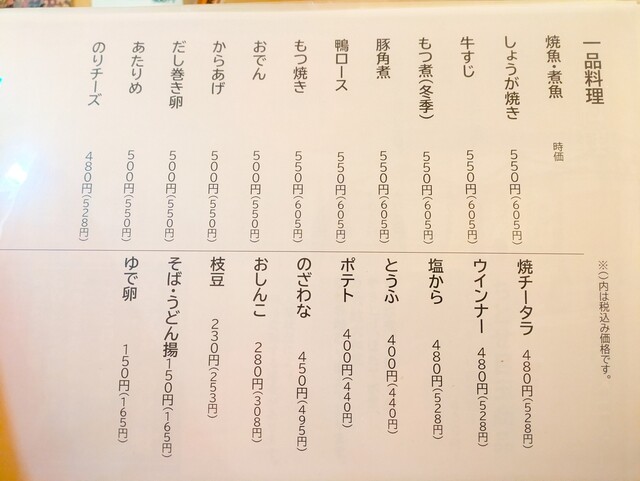 一品料理
※()内は税込み価格です。
焼魚・煮魚 時価
しょうが焼き 550円(605円)
牛すじ 550円(605円)
もつ煮(冬季) 550円(605円)
豚角煮 550円(605円)
鴨ロース 550円(605円)
もつ焼き 550円(605円)
おでん 500円(550円)
からあげ 500円(550円)
だし巻き卵 500円(550円)
あたりめ 500円(550円)
のりチーズ 480円(528円)
焼チータラ 480円(528円)
ウインナー 480円(528円)
塩から 480円(528円)
とうふ 400円(440円)
ポテト 400円(440円)
のざわな 450円(495円)
おしんこ 280円(308円)
枝豆 230円(253円)
そば・うどん揚 150円(165円)
ゆで卵 150円(165円)